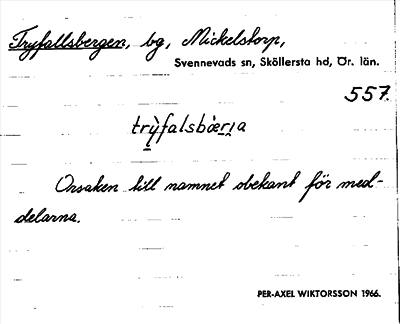 Tryfallsbergen, bg, Mickelstorp,
Svennevads sn, Sköllersta hd, Ör. län.
557.
trỳfalsbær̥i̯a
Orsaken till namnet obekant för med-
delarna.
PER-AXEL WIKTORSSON 1966.